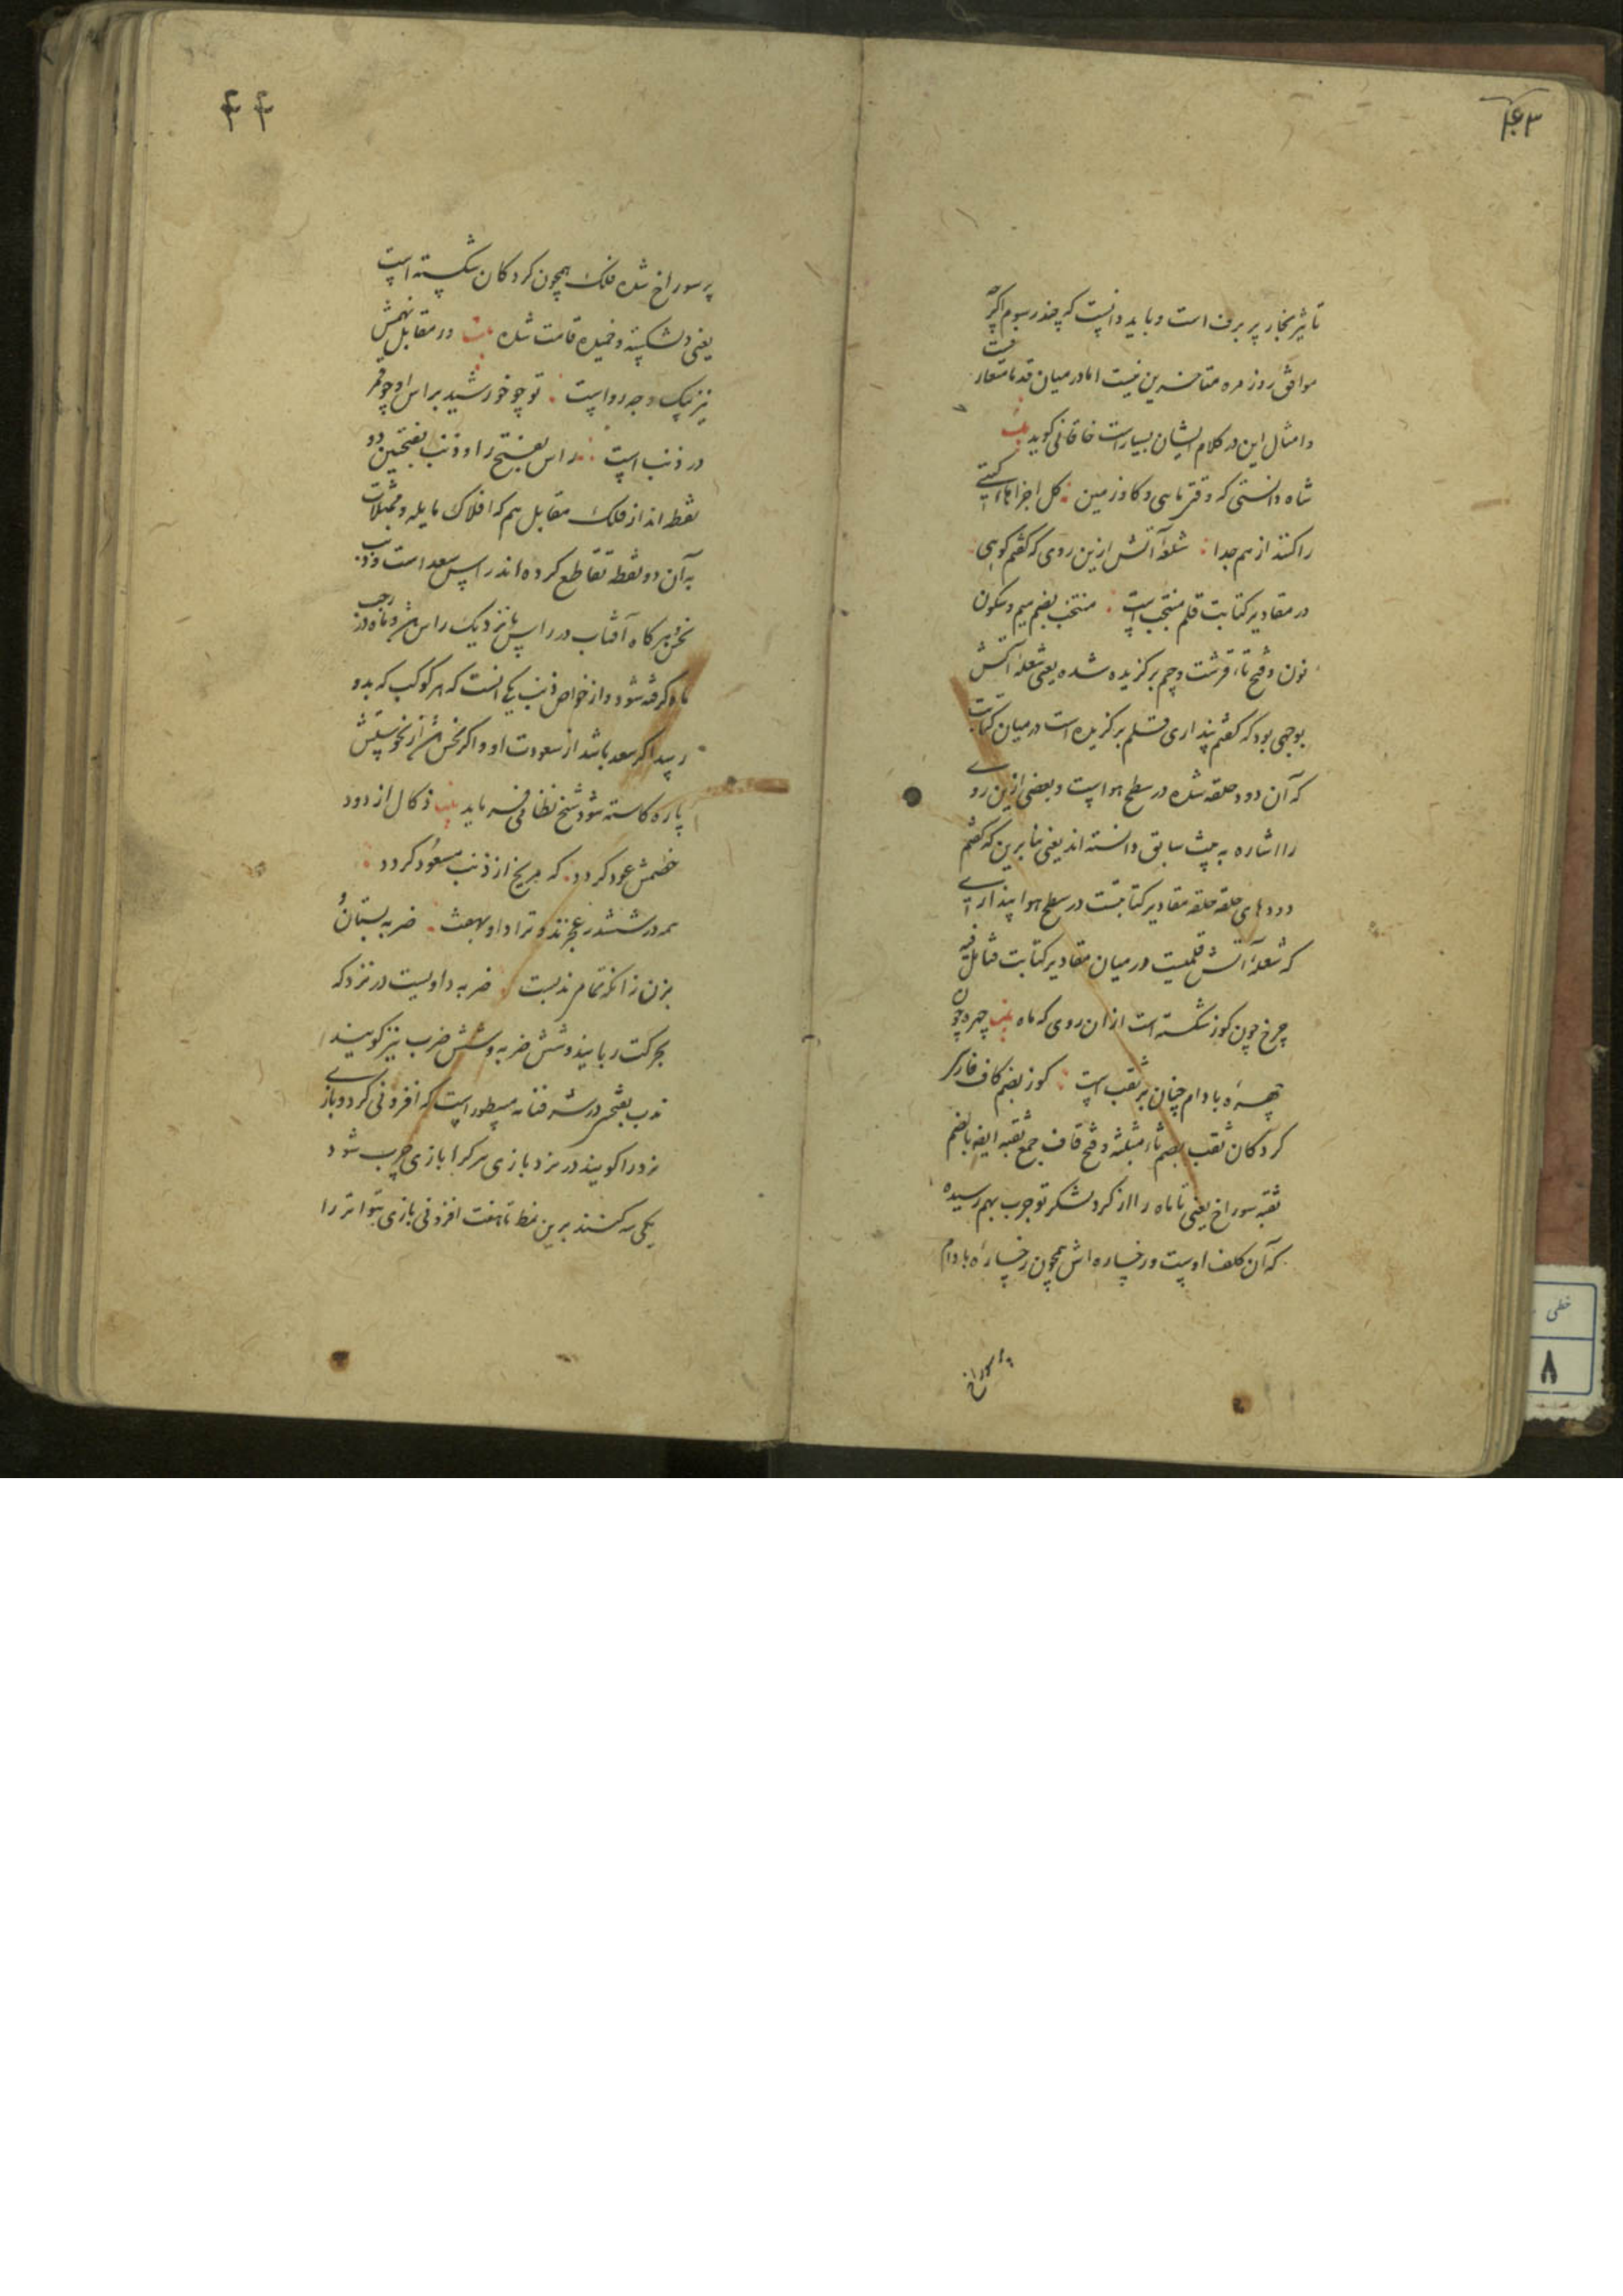 ۴۳
تاثیر بخار پر برف است و باید دانست که چند رسوم اگرچه
موافق روزمره متاخرین نیست اما در میان قدما متعارفست
و امثال این در کلام ایشان بسیارست خاقانی کوید بیت
شاه دانستی که وقتی ماهی و کاو زمین کل اجزاها
را کنند از هم جدا شعلهٔ آتش ازین روی که کفتم کوئی
در مقادیر کتابت قلم منتخب است منتخب بضم میم و سکون
نون و فتح تاء قرشت و برکزیده شده یعنی شعلهٔ آتش
بوجهی بود که کفتم پنداری قلم برکزیده است در میان کتابت
که آن دود حلقه شده در سطح هواست و بعضی ازین روے
را اشاره به بیت سابق دانسته اند یعنی بنابرین که کفتم
دودهای حلقه حلقه مقادیر کتابتست در سطح هوا پندارے
که شعلهٔ آتش قلمیست در میان مقادیر کتابت
چرخ چون کوز شکسته است از ان روی که ماه بیت چهره چون
چهرهٔ بادام چنان پر ثقب است کوز بضم کاف فارسی
کردکان ثقب بضم ثاء مثلثه و فتح قاف جمع ثقبه ایضا بالضم
ثقبه سوراخ یعنی تا ماه را از کرد لشکر تو جرب بهم رسیده
که آن کلف اوست و رخساره اش همچون رخسارهٔ بادام
پر سوراخ
۴۴
پر سوراخ شده فلک همچون کردکان شکسته است
یعنی دلشکسته و خمیده قامت شده بیت در مقابل نهمش
نیز بیک وجه رواست تو چو خورشید براس او چو قمر
در ذنب است راس بفتح را و ذنب بفتحین دو
نقطه اند از فلک مقابل هم که افلاک مایله و ممثلات
به آن دو نقطه تقاطع کرده اند راس سعد است و ذنب
نحس و هرکاه آفتاب در راس یا نزدیک راس و ماه در ذنب
ماه کرفته شود و از خواص ذنب یکی انست که هر کوکب که بدو
رسد اکر سعد باشد از سعودت او و اکر نحس از نحوستش
پاره کاسته شود شیخ نظامی فرماید بیت ذکال از دود
خصمش عود کردد که مریخ از ذنب مسعود کردد
همه در ششدر عجزند و ترا داو بهفت ضربه بستان و
بزن زانکه تمام ندبست ضربه داویست در نرد که
بحرکت ربایند و شش ضربه و شش ضرب نیز کویند
ندب بفتحین در مسطور است که افزونی کرد و بازے
نرد را کویند در نرد بازی هر کرا بازی چرب شود
یکی سه کنند برین نمط تا هفت افزونی بازی متواتر را
خطی
۸